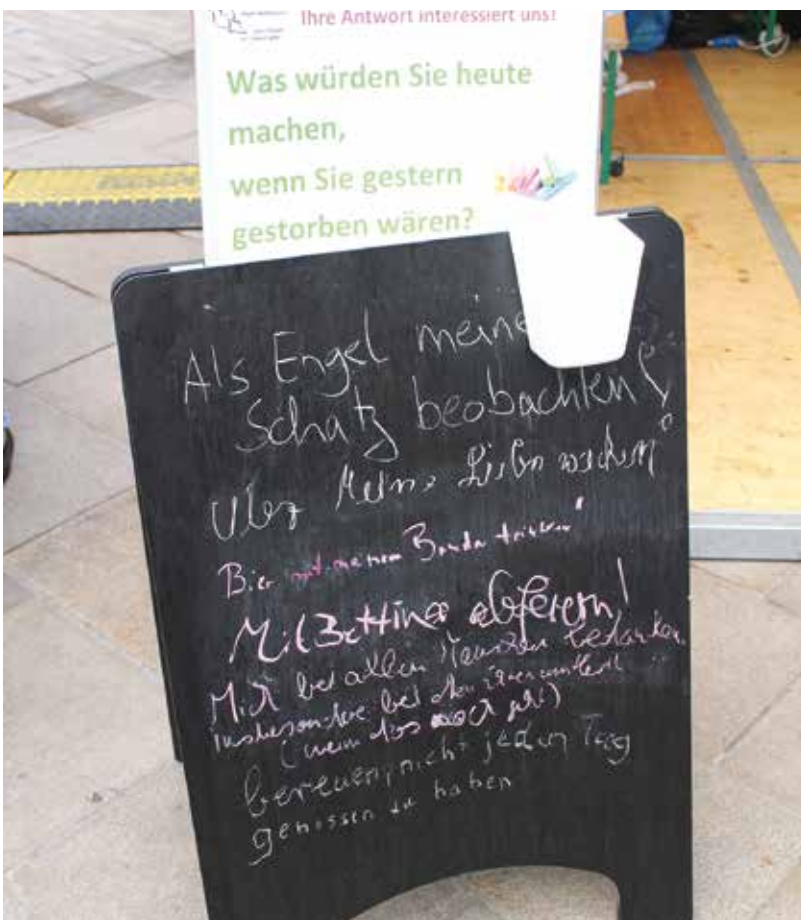 Ihre Antwort interessiert uns!
Was würden Sie heute
machen,
wenn Sie gestern
gestorben wären?
Als Engel meine
Schatz beobachten!
Über Meine Lieben wachen
Bier mit meinem Bruder trinken!
Mit Bettina abfeiern!
Mich bei allen bedanken
insbesondere bei den
(wenn das noch geht)
bereuen, nicht jeden Tag
genossen zu haben